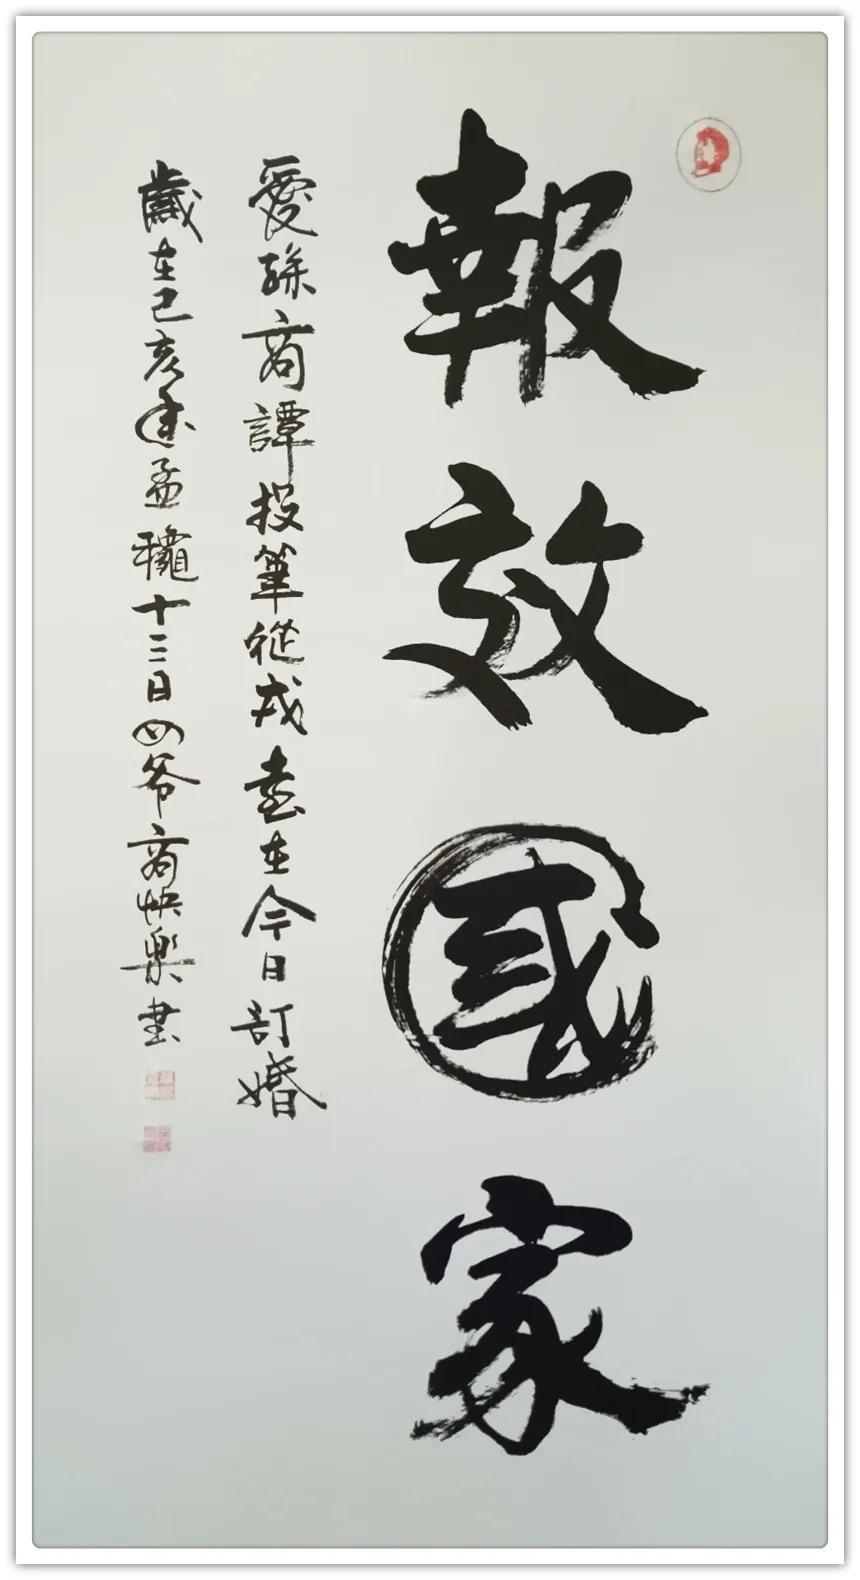 報效國家
愛孫商譚投筆從戎喜在今日訂婚
歲在己亥年孟龝十三日四爷商快樂書